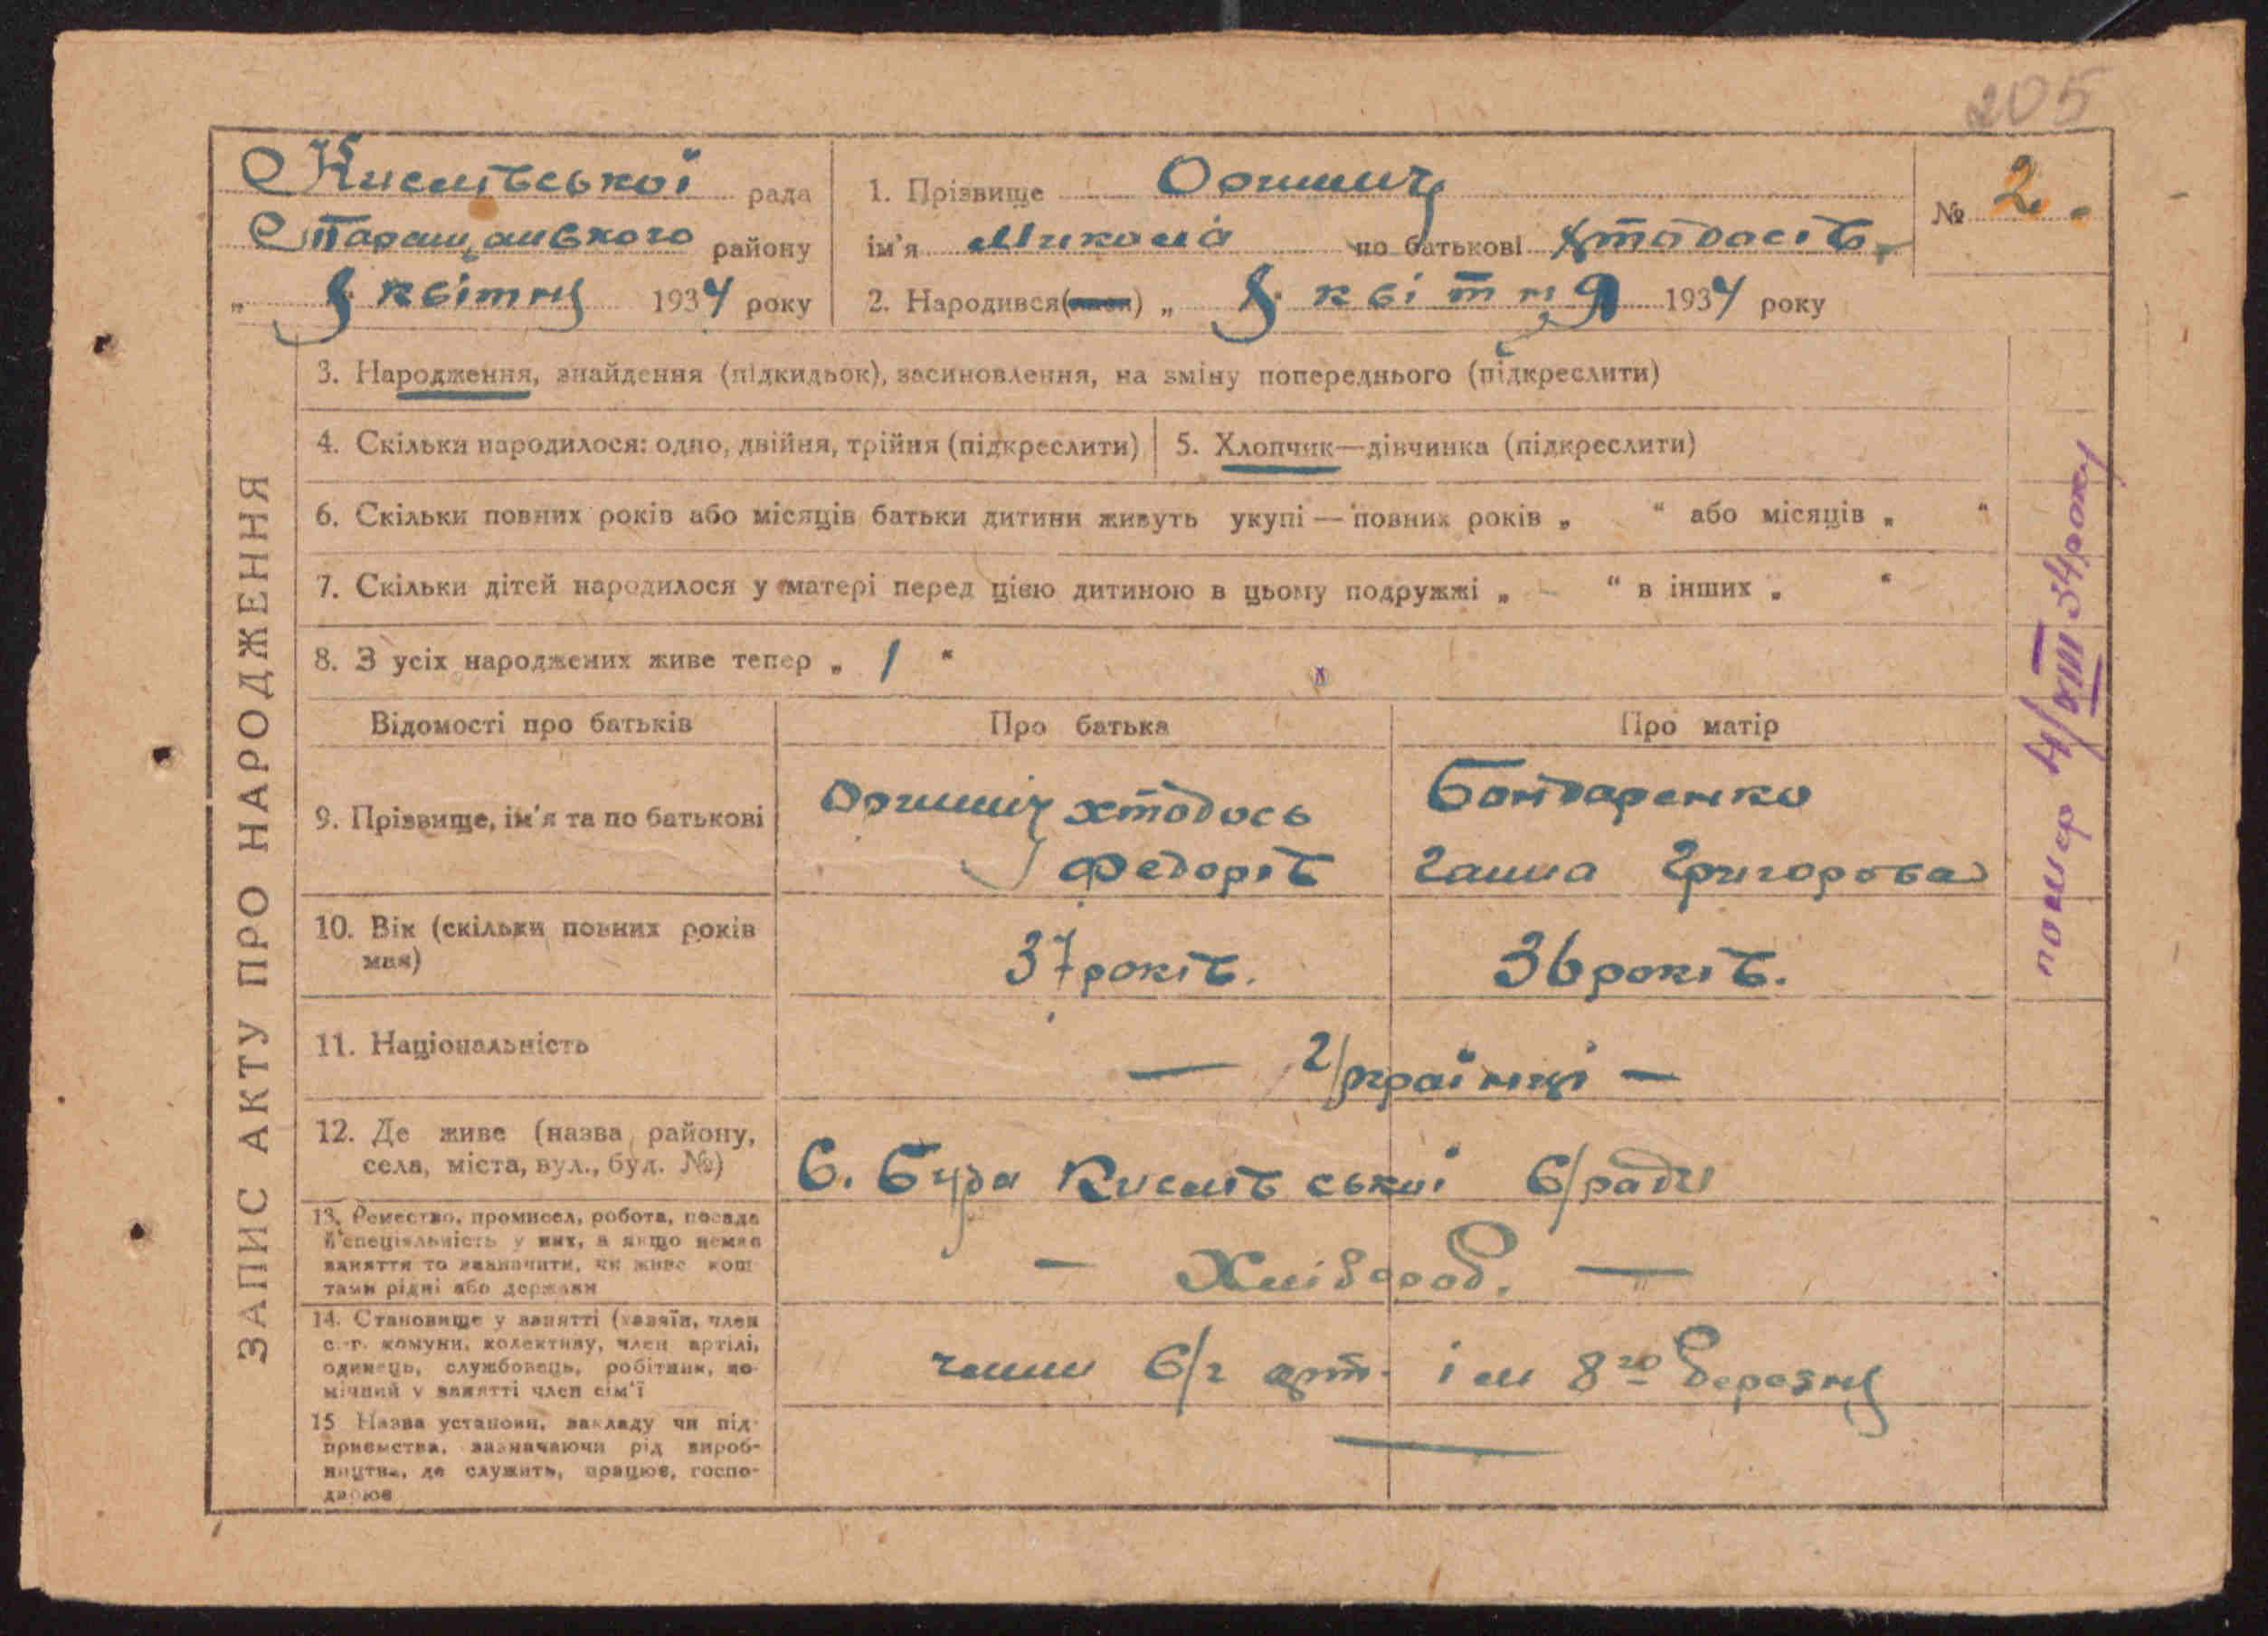 205
С Кислівської рада
С Таращанського району
„ 8 квітня 1934 року
1. Прізвище Оришич
ім'я Микола по батькові Хтодосів
№ 2.
2. Народився(лася) „ 8 квітня 1934 року
ЗАПИС АКТУ ПРО НАРОДЖЕННЯ
3. Народження, знайдення (підкидьок), засиновлення, на зміну попереднього (підкреслити)
4. Скільки народилося: одно, двійня, трійня (підкреслити)
5. Хлопчик—дівчинка (підкреслити)
6. Скільки повних років або місяців батьки дитини живуть укупі — повних років „ “ або місяців „ “
7. Скільки дітей народилося у матері перед цією дитиною в цьому подружжі „ - “ в інших „ “
8. З усіх народжених живе тепер „ 1 “
помер 4/VIII 34 року
Відомості про батьків
Про батька
Про матір
9. Прізвище, ім'я та по батькові
Оришич Хтодось
Федорів
Бондаренко
Ганна Григорова
10. Вік (скільки повних років
має)
37 років.
36 років.
11. Національність
— Українці —
12. Де живе (назва району,
села, міста, вул., буд. №)
С. Буда Кислівської с/ради
13. Ремество, промисел, робота, посада
й спеціяльність у них, а якщо немає
заняття то зазначити, чи живе кош
тами рідні або держави
— Хлібороб. —
14. Становище у занятті (хазяїн, член
с.-г. комуни, колективу, член артілі,
одинець, службовець, робітник, по-
мічний у занятті член сім'ї
член с/г арт. ім 8го березня
15 Назва установи, закладу чи під-
приємства, зазначаючи рід вироб-
ництва, де служить, працює, госпо-
дарює
—